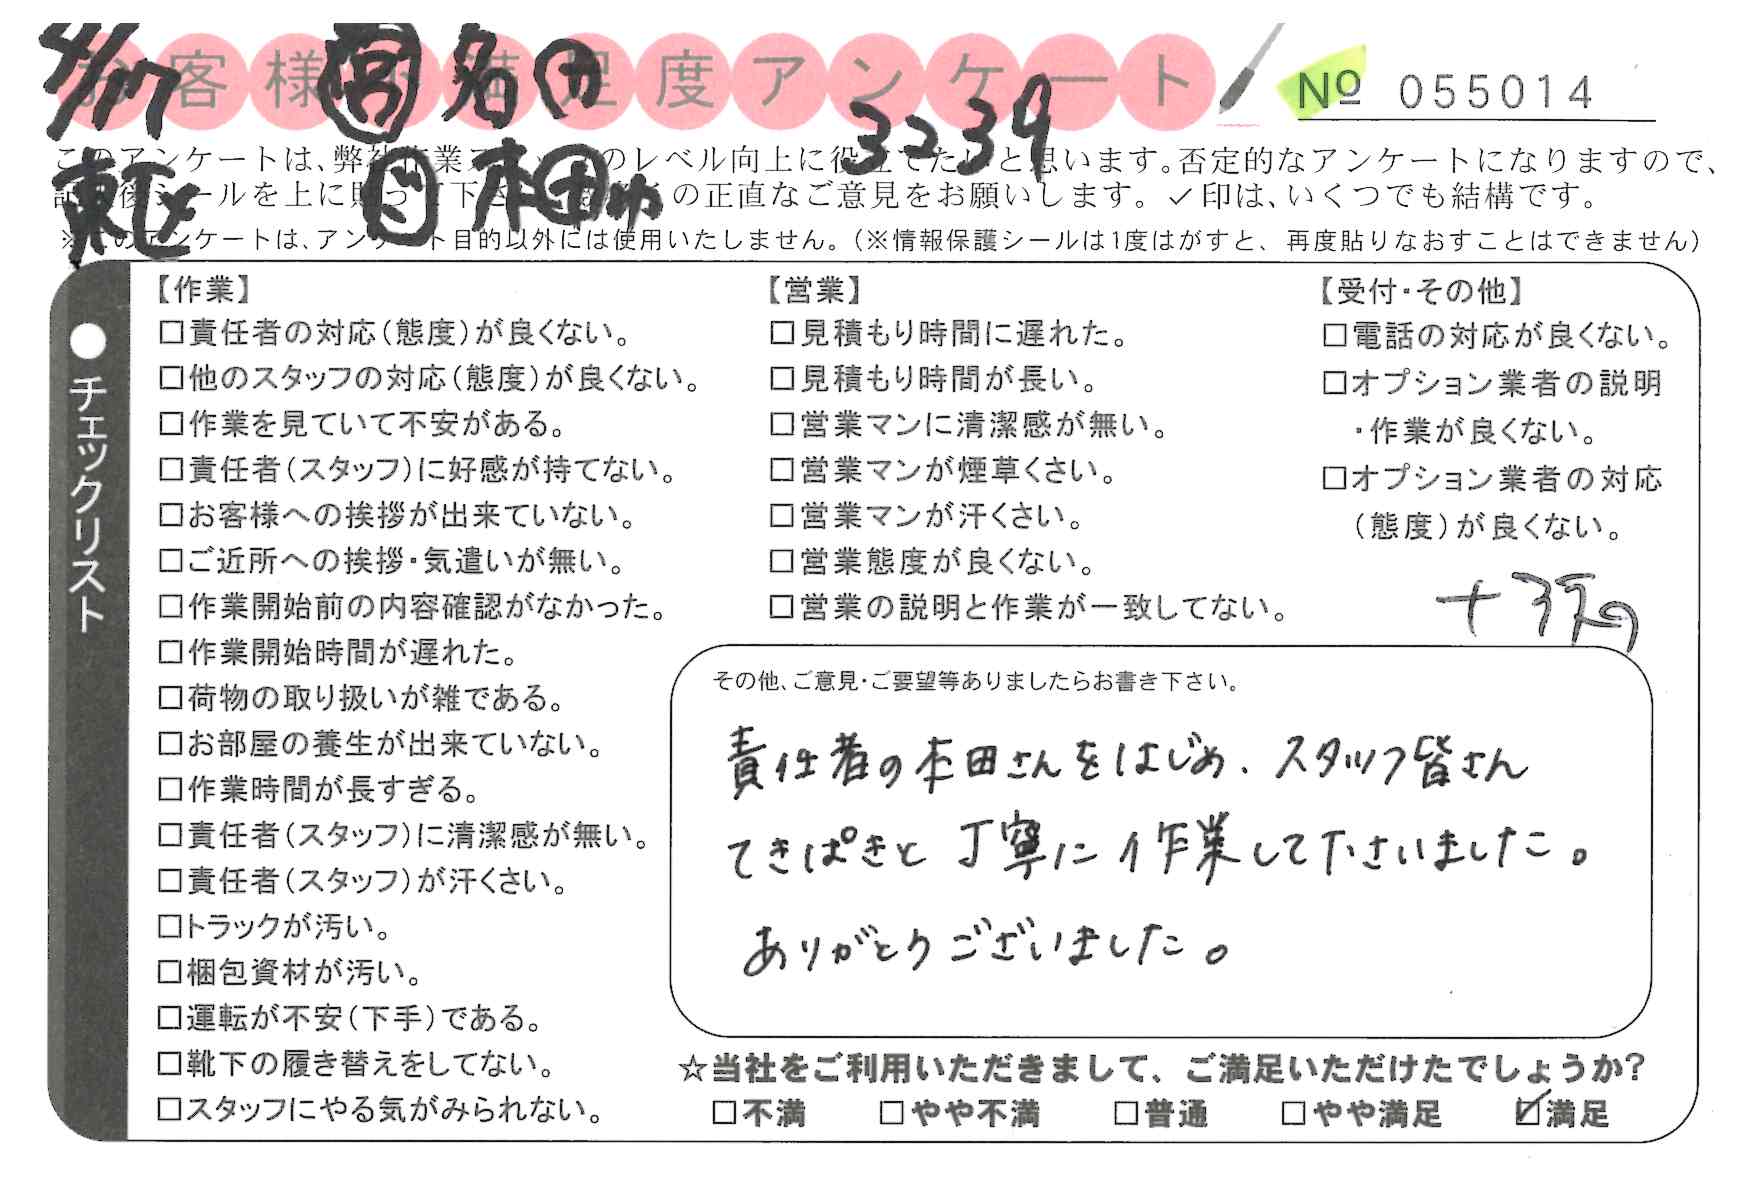 4/17
お客様不満足度アンケート
№ 055014
3239
このアンケートは、弊社作業スタッフのレベル向上に役立てたいと思います。否定的なアンケートになりますので、
記入後シールを上に貼って下さい。お客様の正直なご意見をお願いします。✓印は、いくつでも結構です。
※このアンケートは、アンケート目的以外には使用いたしません。（※情報保護シールは1度はがすと、再度貼りなおすことはできません）
●チェックリスト
【作業】
□責任者の対応（態度）が良くない。
□他のスタッフの対応（態度）が良くない。
□作業を見ていて不安がある。
□責任者（スタッフ）に好感が持てない。
□お客様への挨拶が出来ていない。
□ご近所への挨拶・気遣いが無い。
□作業開始前の内容確認がなかった。
□作業開始時間が遅れた。
□荷物の取り扱いが雑である。
□お部屋の養生が出来ていない。
□作業時間が長すぎる。
□責任者（スタッフ）に清潔感が無い。
□責任者（スタッフ）が汗くさい。
□トラックが汚い。
□梱包資材が汚い。
□運転が不安（下手）である。
□靴下の履き替えをしてない。
□スタッフにやる気がみられない。
【営業】
□見積もり時間に遅れた。
□見積もり時間が長い。
□営業マンに清潔感が無い。
□営業マンが煙草くさい。
□営業マンが汗くさい。
□営業態度が良くない。
□営業の説明と作業が一致してない。
【受付・その他】
□電話の対応が良くない。
□オプション業者の説明
・作業が良くない。
□オプション業者の対応
（態度）が良くない。
その他、ご意見・ご要望等ありましたらお書き下さい。
責任者の本田さんをはじめ、スタッフ皆さん
てきぱきと丁寧に作業して下さいました。
ありがとうございました。
☆当社をご利用いただきまして、ご満足いただけたでしょうか?
□不満 □やや不満 □普通 □やや満足 ☑満足